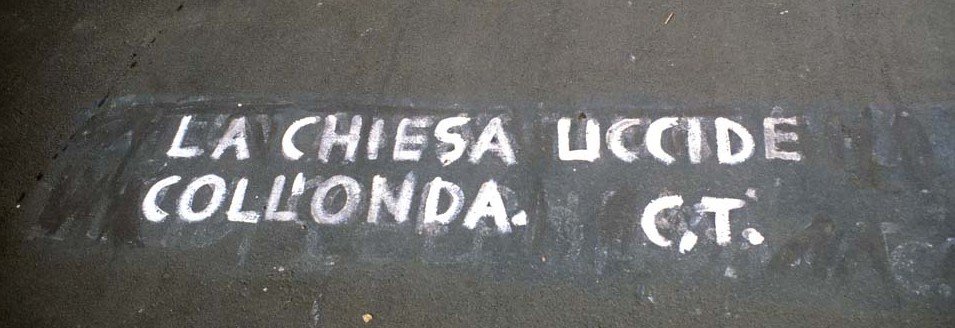 LA CHIESA UCCIDE
COLL'ONDA. C.T.